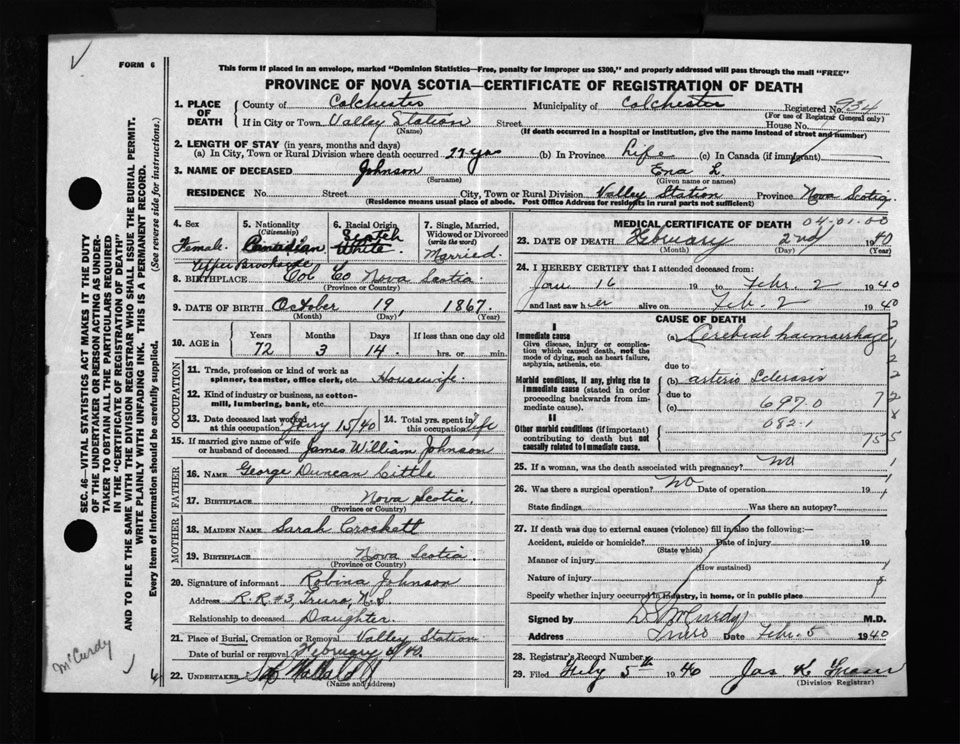 FORM 6
This form if placed in an envelope, marked "Dominion Statistics—Free, penalty for improper use $300," and properly addressed will pass through the mail "FREE"
PROVINCE OF NOVA SCOTIA—CERTIFICATE OF REGISTRATION OF DEATH
1. PLACE OF DEATH
County of Colchester Municipality of Colchester Registered No. 934
(For use of Registrar General only)
If in City or Town Valley Station Street House No.
(Name) (If death occurred in a hospital or institution, give the name instead of street and number)
2. LENGTH OF STAY (in years, months and days)
(a) In City, Town or Rural Division where death occurred 27 yrs (b) In Province Life (c) In Canada (if immigrant)
3. NAME OF DECEASED Johnson Ena L.
(Surname) (Given name or names)
RESIDENCE No. Street City, Town or Rural Division Valley Station Province Nova Scotia
(Residence means usual place of abode. Post Office Address for residents in rural parts not sufficient)
4. Sex Female
5. Nationality (Citizenship) Canadian
6. Racial Origin Scotch White
7. Single, Married, Widowed or Divorced (write the word) Married.
8. BIRTHPLACE Upper Brookside Col Co Nova Scotia
(Province or Country)
9. DATE OF BIRTH October 19, 1867
(Month) (Day), (Year)
10. AGE in Years 72 Months 3 Days 14. If less than one day old
hrs. or min.
OCCUPATION
11. Trade, profession or kind of work as spinner, teamster, office clerk, etc. Housewife.
12. Kind of industry or business, as cotton-mill, lumbering, bank, etc.
13. Date deceased last worked at this occupation Jany 15/40
14. Total yrs. spent in this occupation Life
15. If married give name of wife or husband of deceased James William Johnson
FATHER
16. NAME George Duncan Little
17. BIRTHPLACE Nova Scotia.
(Province or Country)
MOTHER
18. MAIDEN NAME Sarah Crockett
19. BIRTHPLACE Nova Scotia
(Province or Country)
20. Signature of informant Robina Johnson
Address R.R #3, Truro, N.S
Relationship to deceased Daughter.
21. Place of Burial, Cremation or Removal Valley Station
Date of burial or removal February 4/40.
22. UNDERTAKER
(Name and address)
MEDICAL CERTIFICATE OF DEATH 04-01-00
23. DATE OF DEATH February 2nd 1940
(Month) (Day) (Year)
24. I HEREBY CERTIFY that I attended deceased from:
Jan 16 19 to Feb. 2 1940
and last saw her alive on Feb. 2 1940
CAUSE OF DEATH
I
Immediate cause
Give disease, injury or complication which caused death, not the mode of dying, such as heart failure, asphyxia, asthenia, etc.
(a) Cerebral haemorrhage
due to
Morbid conditions, if any, giving rise to immediate cause (stated in order proceeding backwards from immediate cause).
(b) arterio Sclerosis
due to
(c) 697.0
082-1
II
Other morbid conditions (if important) contributing to death but not causally related to immediate cause.
25. If a woman, was the death associated with pregnancy? No
26. Was there a surgical operation? No Date of operation 19
State findings Was there an autopsy?
27. If death was due to external causes (violence) fill in also the following:—
Accident, suicide or homicide? Date of injury 19
(State which)
Manner of injury
(How sustained)
Nature of injury
Specify whether injury occurred in industry, in home, or in public place
Signed by D S McCurdy M.D.
Address Truro Date Feb. 5 1940
28. Registrar's Record Number
29. Filed Feby 5th 1940 Jas K Fraser
(Division Registrar)
SEC. 46—VITAL STATISTICS ACT MAKES IT THE DUTY
OF THE UNDERTAKER OR PERSON ACTING AS UNDER-
TAKER TO OBTAIN ALL THE PARTICULARS REQUIRED
IN THE "CERTIFICATE OF REGISTRATION OF DEATH"
AND TO FILE THE SAME WITH THE DIVISION REGISTRAR WHO SHALL ISSUE THE BURIAL PERMIT.
WRITE PLAINLY WITH UNFADING INK. THIS IS A PERMANENT RECORD.
Every item of information should be carefully supplied. (See reverse side for instructions.)
McCurdy